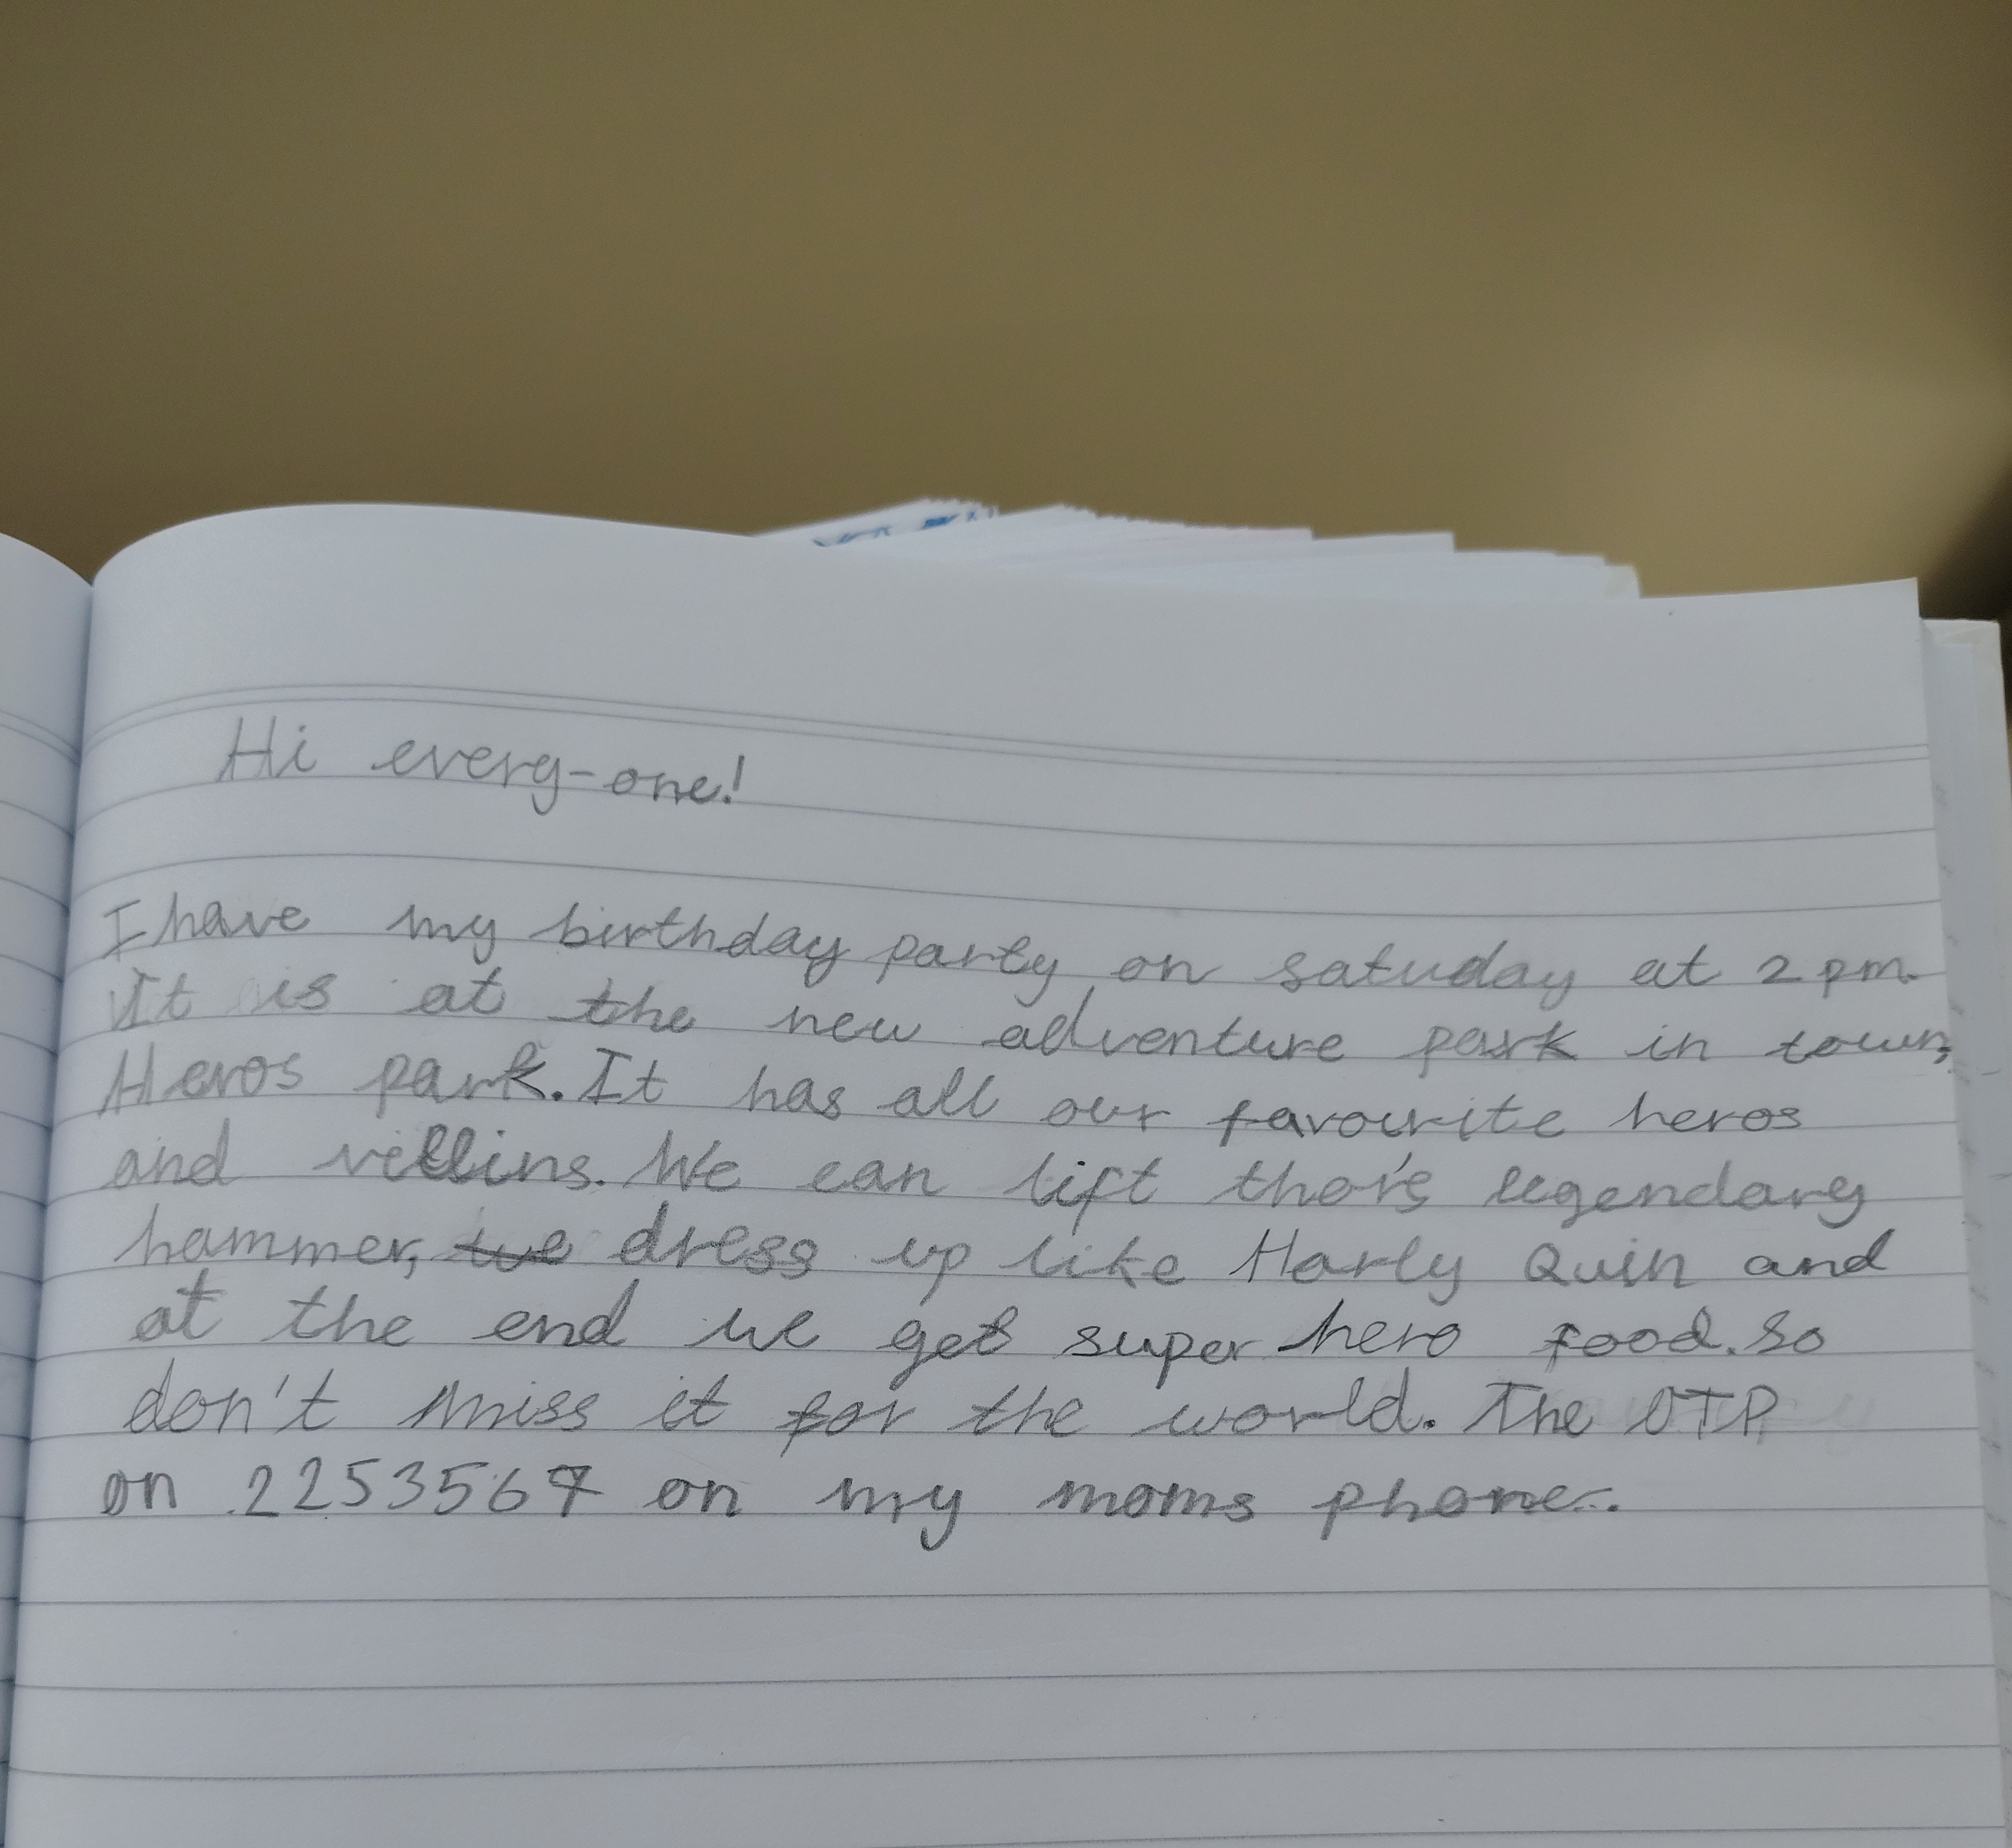 Hi every-one!
I have my birthday party on satuday at 2 pm.
It is at the new adventure park in town,
Heros park. It has all our favourite heros
and villins. We can lift thor's legendary
hammer, we dress up like Harly Quin and
at the end we get super hero food. So
don't miss it for the world. The OTP
on 2253567 on my moms phone.